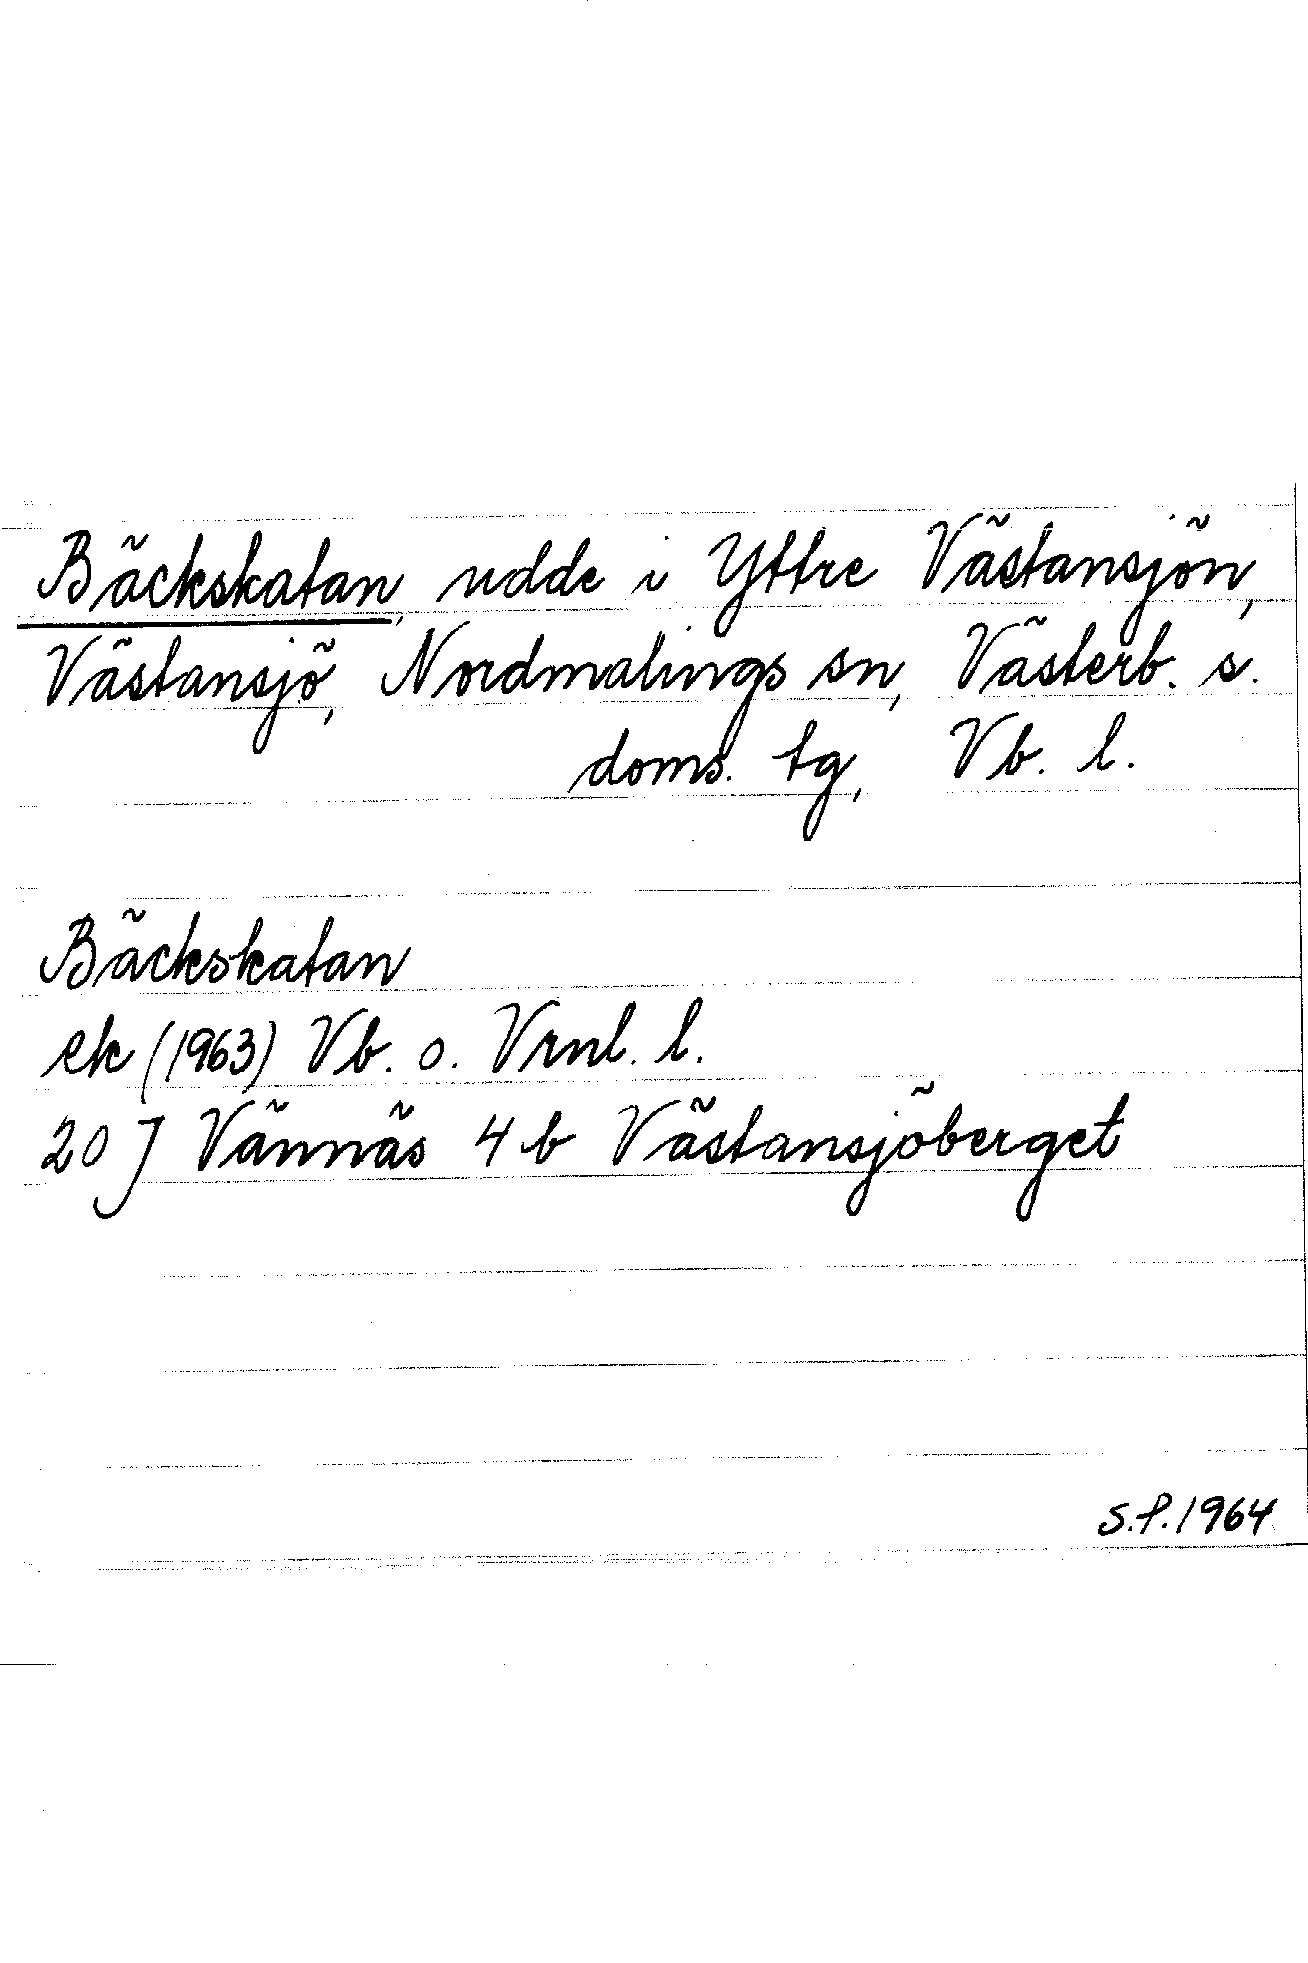 Bäckskatan, udde i Yttre Västansjön,
Västansjö, Nordmalings sn, Västerb. s.
doms. tg, Vb. l.
Bäckskatan
ek (1963) Vb. o. Vrnl. l.
20 J Vännäs 4 b Västansjöberget
S.P. 1964